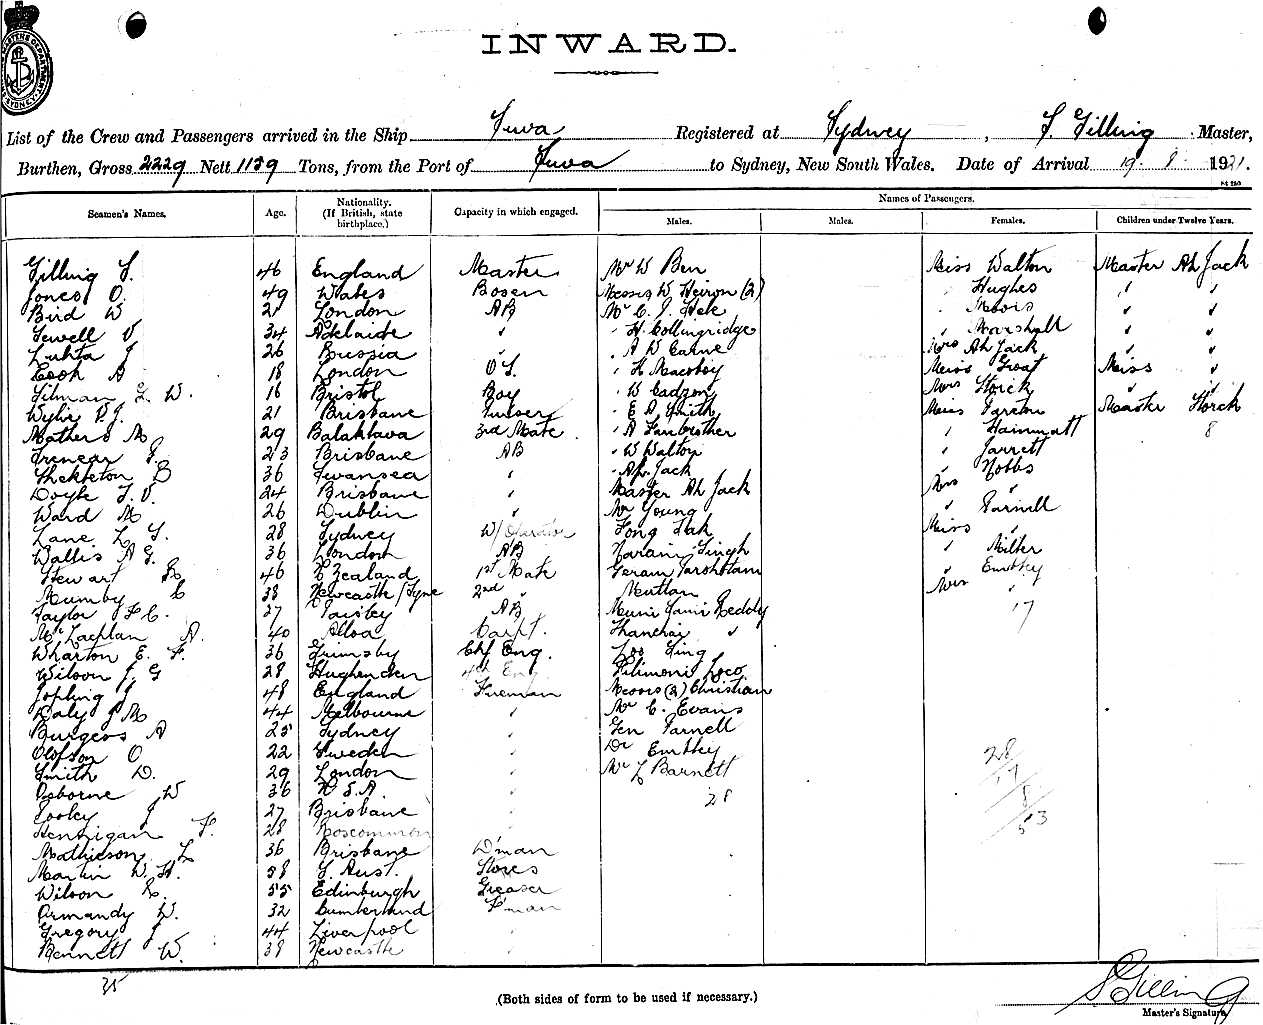 INWARD.
List of the Crew and Passengers arrived in the Ship Suva Registered at Sydney, S. Gilling Master,
Burthen, Gross 2229 Nett 1159 Tons, from the Port of Suva to Sydney, New South Wales. Date of Arrival 19. 8. 1921.
Names of Passengers.
Seamen's Names. Age. Nationality. (If British, state birthplace.) Capacity in which engaged. Males. Males. Females. Children under Twelve Years.
Gilling S. 46 England Master Mr W Ben Miss Walton Master Ah Jack
Jones O. 49 Wales Bosen Messrs W Heiron (2) " Hughes " "
Bird W 21 London AB Mr C. J. " "
Sewell V 34 Adelaide " " H. Collingridge " Marshall " "
J 26 Russia " " A W Carne Mrs Ah Jack " "
Cook A 18 London OS " H Miss Groat Miss "
Silman G. W. 16 Bristol Boy " W Cadzow Mrs Storck " "
Wylie V. J. 21 Brisbane Purser " E A Smith Miss Master Storck
Mathers M 29 Balaklava 3rd Mate " A " 8
23 Brisbane AB " W Walton " Jarrett
B 36 Swansea " " Ah Jack " Hobbs
Doyle J. V. 24 Brisbane " Master Ah Jack Mrs "
Ward M 26 Dublin " Mr Young " Parnell
Lane L S. 28 Sydney W/ Fong Miss "
Wallis A G. 36 London AB Narain Singh " Miller
Stewart R 46 N Zealand 1st Mate " Emthey
Mumby C 38 Newcastle/Tyne 2nd " Muttan Mrs "
Taylor F C. 27 Paisley AB Muni Sami Reddy 17
McLachlan A. 40 Alloa Carpt. "
Wharton E. F. 36 Grimsby Chf Eng. Loo Sing
Wilson J. G 28 Hughenden 4th Eng Filimoni Loco
Jopling J 48 England Fireman Messrs (2) Christian
Daly J M 44 Melbourne " Mr C. Evans
Burgess A 25 Sydney " Gen Parnell
Olofson O 22 Sweden " Dr Emthey
Smith D. 29 London " Mr L Barnett
Osborne W 36 U S A. " 28
Tooley J 27 Brisbane "
Hennigan F. 28 Roscommon "
Mathieson L 36 Brisbane D'man
Martin W. H. 58 S. Aust. Stores
Wilson R. 55 Edinburgh Greaser
Ormandy W. 32 Cumberland F'man
Gregory J 44 Liverpool "
Bennett W. 39 Newcastle "
28
17
8
53
35
(Both sides of form to be used if necessary.)
S Gilling
Master's Signature